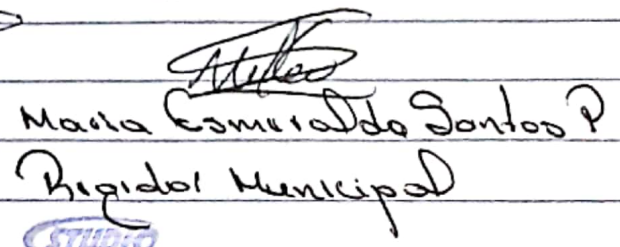 Maria Esmeralda Santos P
Regidor Municipal
STUDIO